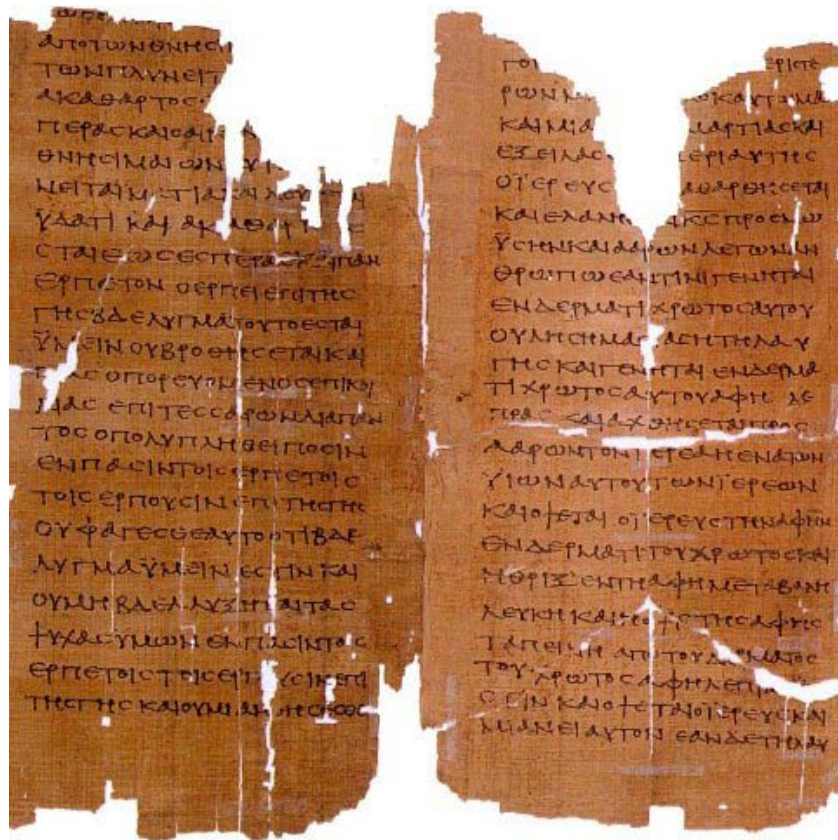 ΑΠΟΤΩΝΘΝΗϹΙ
ΤΩΝΠΛΥΝΕΙΤ
ΑΚΑΘΑΡΤΟϹ
ΠΕΡΑϹΚΑΙΟΑΙΡ
ΘΝΗϹΙΜΑΙΩΝ
ΝΕΙΤΑΙΜΑΤΙΑΚΑΙΛΟΥ
ΫΔΑΤΙ ΚΑΙ ΑΚΑΘΑΡΤΟϹ
ϹΤΑΙΕΩϹΕϹΠΕΡΑϹΚΑΙΠΑΝ
ΕΡΠΕΤΟΝ ΟΕΡΠΕΙΕΠΙΤΗϹ
ΓΗϹΒΔΕΛΥΓΜΑΤΟΥΤΟΕϹΤΑΙ
ΫΜΕΙΝ ΟΥΒΡΩΘΗϹΕΤΑΙΚΑΙ
ΠΑϹ ΟΠΟΡΕΥΟΜΕΝΟϹΕΠΙΚΟΙ
ΛΙΑϹ ΕΠΙΤΕϹϹΑΡΩΝΔΙΑΠΑΝ
ΤΟϹ ΟΠΟΛΥΠΛΗΘΕΙΠΟϹΙΝ
ΕΝΠΑϹΙΝΤΟΙϹΕΡΠΕΤΟΙϹ
ΤΟΙϹΕΡΠΟΥϹΙΝ ΕΠΙΤΗϹΓΗϹ
ΟΥΦΑΓΕϹΘΕΑΥΤΟΟΤΙΒΔΕ
ΛΥΓΜΑΫΜΕΙΝ ΕϹΤΙΝ ΚΑΙ
ΟΥΜΗ ΒΔΕΛΛΥΞΗΤΑΙΤΑϹ
ΨΥΧΑϹΥΜΩΝ ΕΝΠΑϹΙΝΤΟϹ
ΕΡΠΕΤΟΙϹΤΟΙϹΕΡΠΟΥϹΙΝΕΠΙ
ΤΗϹΓΗϹ ΚΑΙΟΥΜΙΑΝΘΗϹΕϹΘΕ
ΓΟΝ ΕΡΙϹΤΕ
ΡΩΝ ΚΑΥΤΩΜΙΑ
ΚΑΙΜΙΑ ΜΑΡΤΙΑϹΚΑΙ
ΕΞΕΙΛΑϹ ΠΕΡΙΑΥΤΗϹ
ΟΪΕΡΕΥϹ ΚΑΘΑΡΘΗϹΕΤΑΙ
ΚΑΙΕΛΑΛΗϹΕΝΚϹΠΡΟϹΜΩ
ΫϹΗΝΚΑΙΑΑΡΩΝΛΕΓΩΝΑΝ
ΘΡΩΠΩΕΑΝΤΙΝΙΓΕΝΗΤΑΙ
ΕΝΔΕΡΜΑΤΙΧΡΩΤΟϹΑΥΤΟΥ
ΟΥΛΗϹΗΜΑϹΙΑϹΗΤΗΛΑΥ
ΓΗϹΚΑΙΓΕΝΗΤΑΙ ΕΝΔΕΡΜΑ
ΤΙΧΡΩΤΟϹΑΥΤΟΥΑΦΗ ΛΕ
ΠΡΑϹ ΚΑΙΑΧΘΗϹΕΤΑΙΠΡΟϹ
ΑΑΡΩΝΤΟΝΙΕΡΕΑΗΕΝΑΤΩΝ
ΫΙΩΝΑΥΤΟΥΤΩΝΪΕΡΕΩΝ
ΚΑΙΟΨΕΤΑΙ ΟΪΕΡΕΥϹΤΗΝΑΦΗΝ
ΕΝΔΕΡΜΑΤΙΤΟΥΧΡΩΤΟϹΚΑΙ
ΗΘΡΙΞ ΕΝΤΗΑΦΗΜΕΤΑΒΑΛΗ
ΛΕΥΚΗ ΚΑΙΗΟΨΙϹΤΗϹΑΦΗϹ
ΤΑΠΕΙΝΗ ΑΠΟΤΟΥΔΕΡΜΑΤΟϹ
ΤΟΥ ΧΡΩΤΟϹ ΑΦΗΛΕΠΡΑϹ
ΕϹΤΙΝ ΚΑΙΟΨΕΤΑΙΟΪΕΡΕΥϹΚΑΙ
ΜΙΑΝΕΙΑΥΤΟΝ ΕΑΝΔΕΤΗΛΑΥ